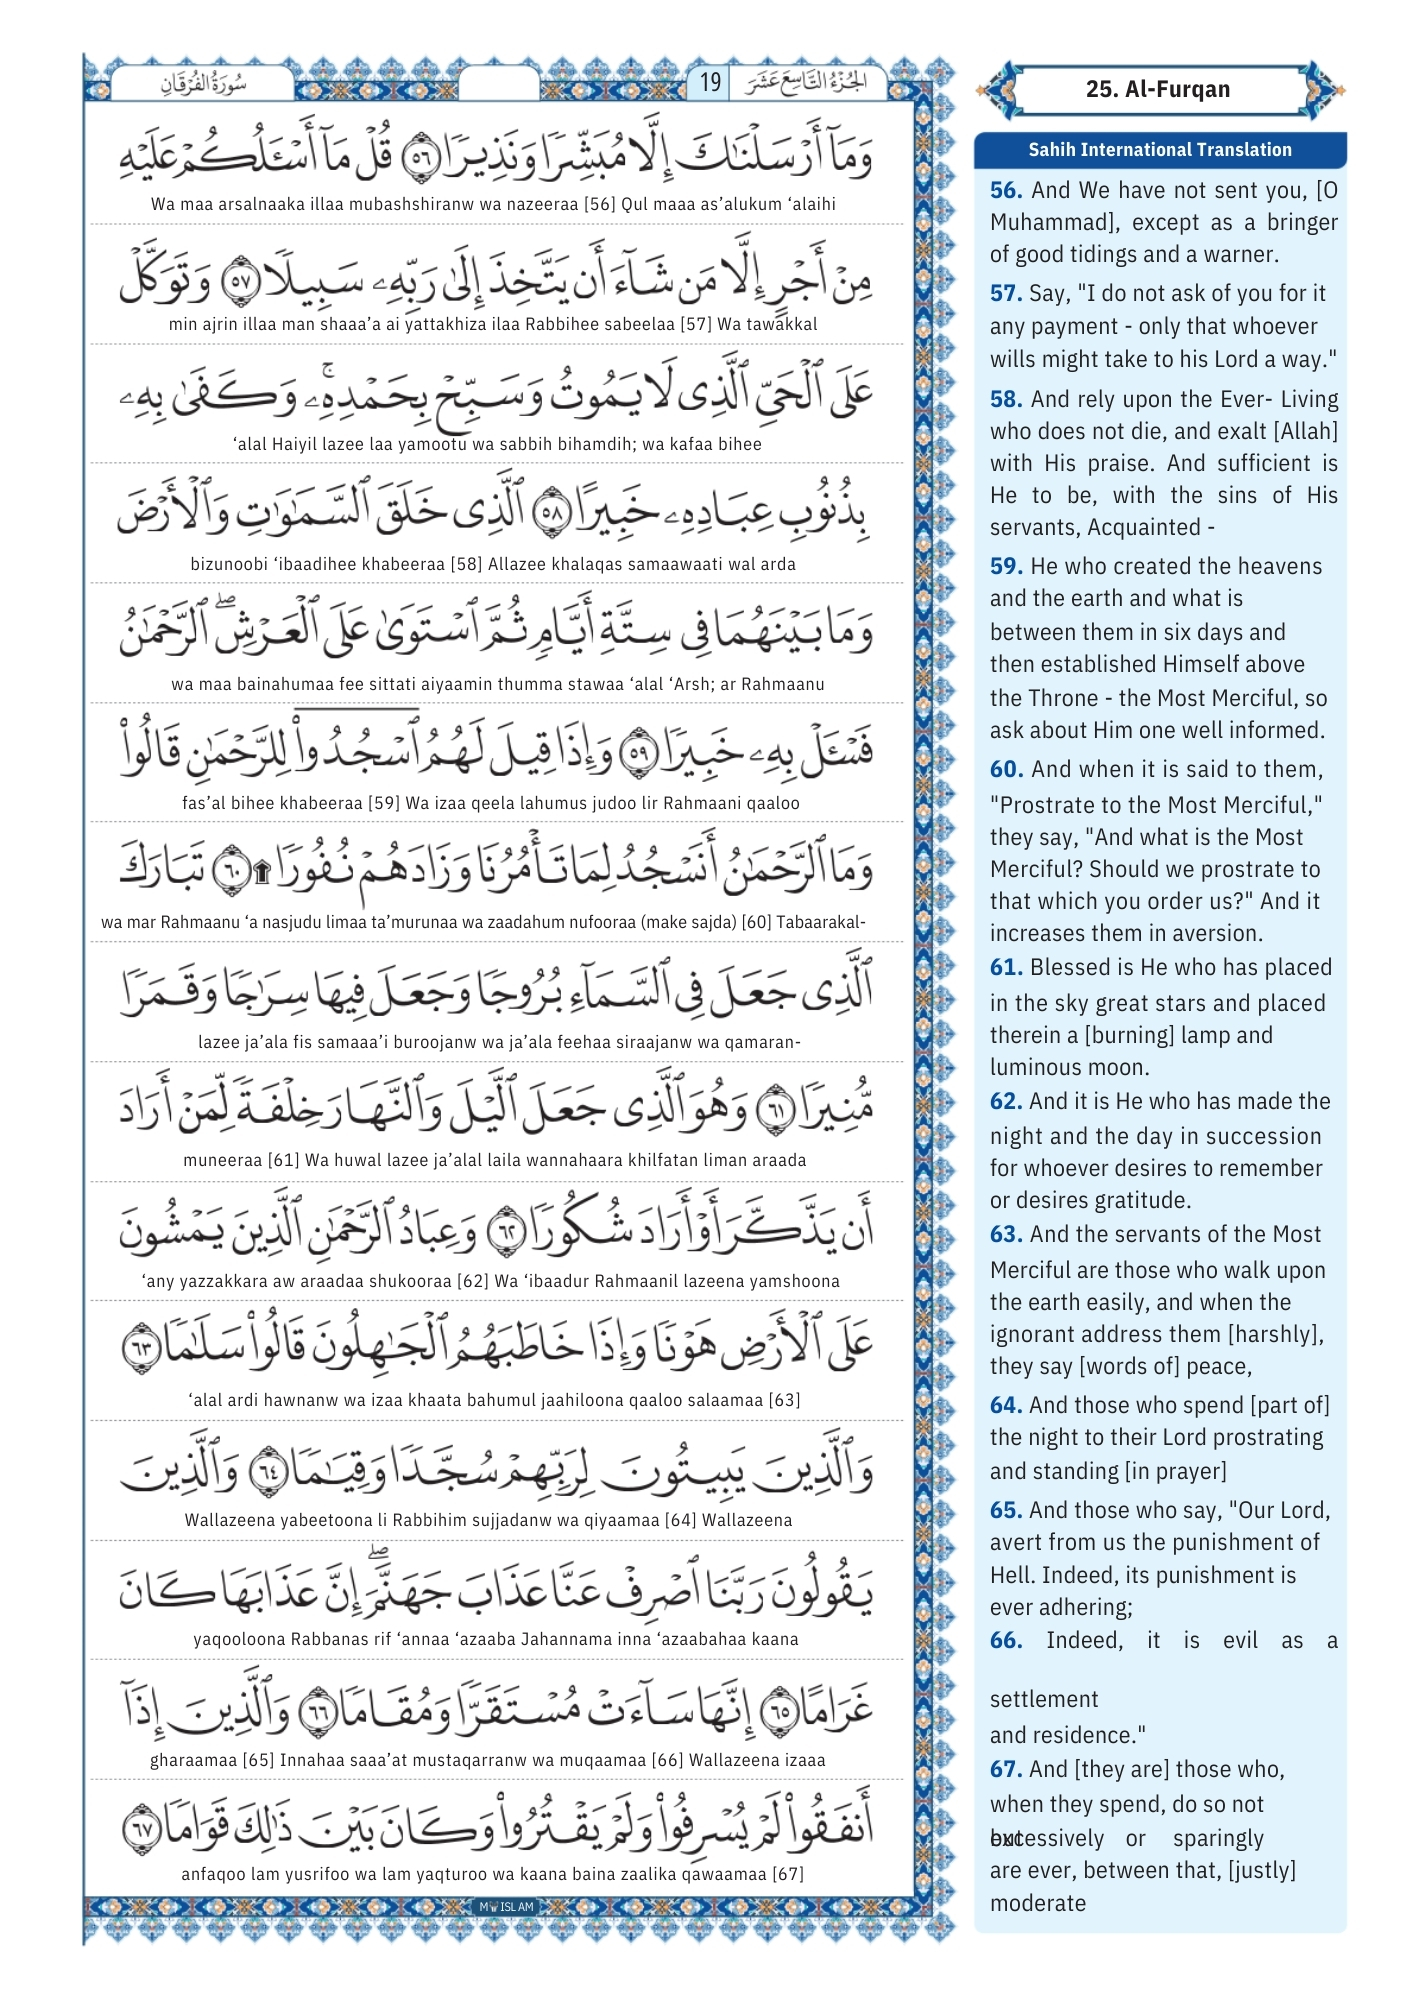 سُورَةُ الفُرْقَان
19
الجُزْءُ التَّاسِعُ عَشَرَ
وَمَآ أَرْسَلْنَٰكَ إِلَّا مُبَشِّرًا وَنَذِيرًا ٥٦ قُلْ مَآ أَسْـَٔلُكُمْ عَلَيْهِ
Wa maa arsalnaaka illaa mubashshiranw wa nazeeraa [56] Qul maaa as’alukum ‘alaihi
مِنْ أَجْرٍ إِلَّا مَن شَآءَ أَن يَتَّخِذَ إِلَىٰ رَبِّهِۦ سَبِيلًا ٥٧ وَتَوَكَّلْ
min ajrin illaa man shaaa’a ai yattakhiza ilaa Rabbihee sabeelaa [57] Wa tawakkal
عَلَى ٱلْحَىِّ ٱلَّذِى لَا يَمُوتُ وَسَبِّحْ بِحَمْدِهِۦ ۚ وَكَفَىٰ بِهِۦ
‘alal Haiyil lazee laa yamootu wa sabbih bihamdih; wa kafaa bihee
بِذُنُوبِ عِبَادِهِۦ خَبِيرًا ٥٨ ٱلَّذِى خَلَقَ ٱلسَّمَٰوَٰتِ وَٱلْأَرْضَ
bizunoobi ‘ibaadihee khabeeraa [58] Allazee khalaqas samaawaati wal arda
وَمَا بَيْنَهُمَا فِى سِتَّةِ أَيَّامٍ ثُمَّ ٱسْتَوَىٰ عَلَى ٱلْعَرْشِ ۖ ٱلرَّحْمَٰنُ
wa maa bainahumaa fee sittati aiyaamin thumma stawaa ‘alal ‘Arsh; ar Rahmaanu
فَسْـَٔلْ بِهِۦ خَبِيرًا ٥٩ وَإِذَا قِيلَ لَهُمُ ٱسْجُدُوا۟ لِلرَّحْمَٰنِ قَالُوا۟
fas’al bihee khabeeraa [59] Wa izaa qeela lahumus judoo lir Rahmaani qaaloo
وَمَا ٱلرَّحْمَٰنُ أَنَسْجُدُ لِمَا تَأْمُرُنَا وَزَادَهُمْ نُفُورًا ۩ ٦٠ تَبَارَكَ
wa mar Rahmaanu ‘a nasjudu limaa ta’murunaa wa zaadahum nufooraa (make sajda) [60] Tabaarakal-
ٱلَّذِى جَعَلَ فِى ٱلسَّمَآءِ بُرُوجًا وَجَعَلَ فِيهَا سِرَٰجًا وَقَمَرًا
lazee ja’ala fis samaaa’i buroojanw wa ja’ala feehaa siraajanw wa qamaran-
مُّنِيرًا ٦١ وَهُوَ ٱلَّذِى جَعَلَ ٱلَّيْلَ وَٱلنَّهَارَ خِلْفَةً لِّمَنْ أَرَادَ
muneeraa [61] Wa huwal lazee ja’alal laila wannahaara khilfatan liman araada
أَن يَذَّكَّرَ أَوْ أَرَادَ شُكُورًا ٦٢ وَعِبَادُ ٱلرَّحْمَٰنِ ٱلَّذِينَ يَمْشُونَ
‘any yazzakkara aw araadaa shukooraa [62] Wa ‘ibaadur Rahmaanil lazeena yamshoona
عَلَى ٱلْأَرْضِ هَوْنًا وَإِذَا خَاطَبَهُمُ ٱلْجَٰهِلُونَ قَالُوا۟ سَلَٰمًا ٦٣
‘alal ardi hawnanw wa izaa khaata bahumul jaahiloona qaaloo salaamaa [63]
وَٱلَّذِينَ يَبِيتُونَ لِرَبِّهِمْ سُجَّدًا وَقِيَٰمًا ٦٤ وَٱلَّذِينَ
Wallazeena yabeetoona li Rabbihim sujjadanw wa qiyaamaa [64] Wallazeena
يَقُولُونَ رَبَّنَا ٱصْرِفْ عَنَّا عَذَابَ جَهَنَّمَ ۖ إِنَّ عَذَابَهَا كَانَ
yaqooloona Rabbanas rif ‘annaa ‘azaaba Jahannama inna ‘azaabahaa kaana
غَرَامًا ٦٥ إِنَّهَا سَآءَتْ مُسْتَقَرًّا وَمُقَامًا ٦٦ وَٱلَّذِينَ إِذَآ
gharaamaa [65] Innahaa saaa’at mustaqarranw wa muqaamaa [66] Wallazeena izaaa
أَنفَقُوا۟ لَمْ يُسْرِفُوا۟ وَلَمْ يَقْتُرُوا۟ وَكَانَ بَيْنَ ذَٰلِكَ قَوَامًا ٦٧
anfaqoo lam yusrifoo wa lam yaqturoo wa kaana baina zaalika qawaamaa [67]
25. Al-Furqan
Sahih International Translation
56. And We have not sent you, [O
Muhammad], except as a bringer
of good tidings and a warner.
57. Say, "I do not ask of you for it
any payment - only that whoever
wills might take to his Lord a way."
58. And rely upon the Ever- Living
who does not die, and exalt [Allah]
with His praise. And sufficient is
He to be, with the sins of His
servants, Acquainted -
59. He who created the heavens
and the earth and what is
between them in six days and
then established Himself above
the Throne - the Most Merciful, so
ask about Him one well informed.
60. And when it is said to them,
"Prostrate to the Most Merciful,"
they say, "And what is the Most
Merciful? Should we prostrate to
that which you order us?" And it
increases them in aversion.
61. Blessed is He who has placed
in the sky great stars and placed
therein a [burning] lamp and
luminous moon.
62. And it is He who has made the
night and the day in succession
for whoever desires to remember
or desires gratitude.
63. And the servants of the Most
Merciful are those who walk upon
the earth easily, and when the
ignorant address them [harshly],
they say [words of] peace,
64. And those who spend [part of]
the night to their Lord prostrating
and standing [in prayer]
65. And those who say, "Our Lord,
avert from us the punishment of
Hell. Indeed, its punishment is
ever adhering;
66. Indeed, it is evil as a
settlement
and residence."
67. And [they are] those who,
when they spend, do so not
excessively or sparingly
but
are ever, between that, [justly]
moderate